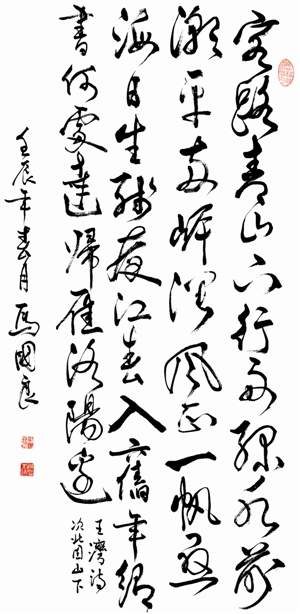 客路青山下行舟綠水前
潮平兩岸闊風正一帆懸
海日生殘夜江春入舊年鄉
書何處達歸雁洛陽邊
王灣詩
次北固山下
壬辰年春月馬國良